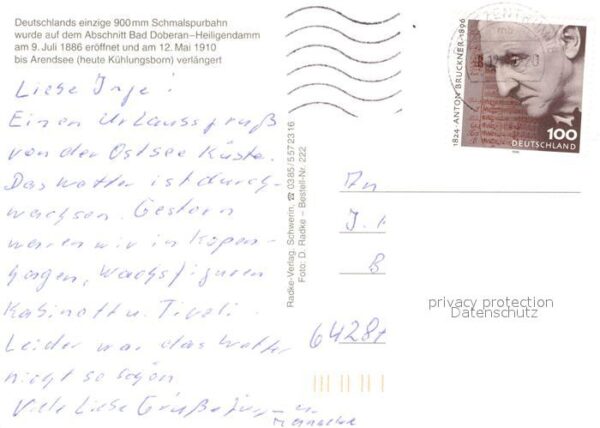 Deutschlands einzige 900mm Schmalspurbahn
wurde auf dem Abschnitt Bad Doberan–Heiligendamm
am 9. Juli 1886 eröffnet und am 12. Mai 1910
bis Arendsee (heute Kühlungsborn) verlängert
Liebe Inge!
Einen Urlaubsgruß
von der Ostsee Küste.
Das Wetter ist durch-
wachsen. Gestern
waren wir in Kopen-
hagen, Wachsfiguren
Kabinett u. Tivoli.
Leider war das Wetter
nicht so schön
Viele Liebe Grüße
u.
Radke-Verlag, Schwerin, ☎ 0385/5572316
Foto: D. Radke – Bestell-Nr. 222
1824·ANTON BRUCKNER·1896
100
DEUTSCHLAND
An
privacy protection
Datenschutz